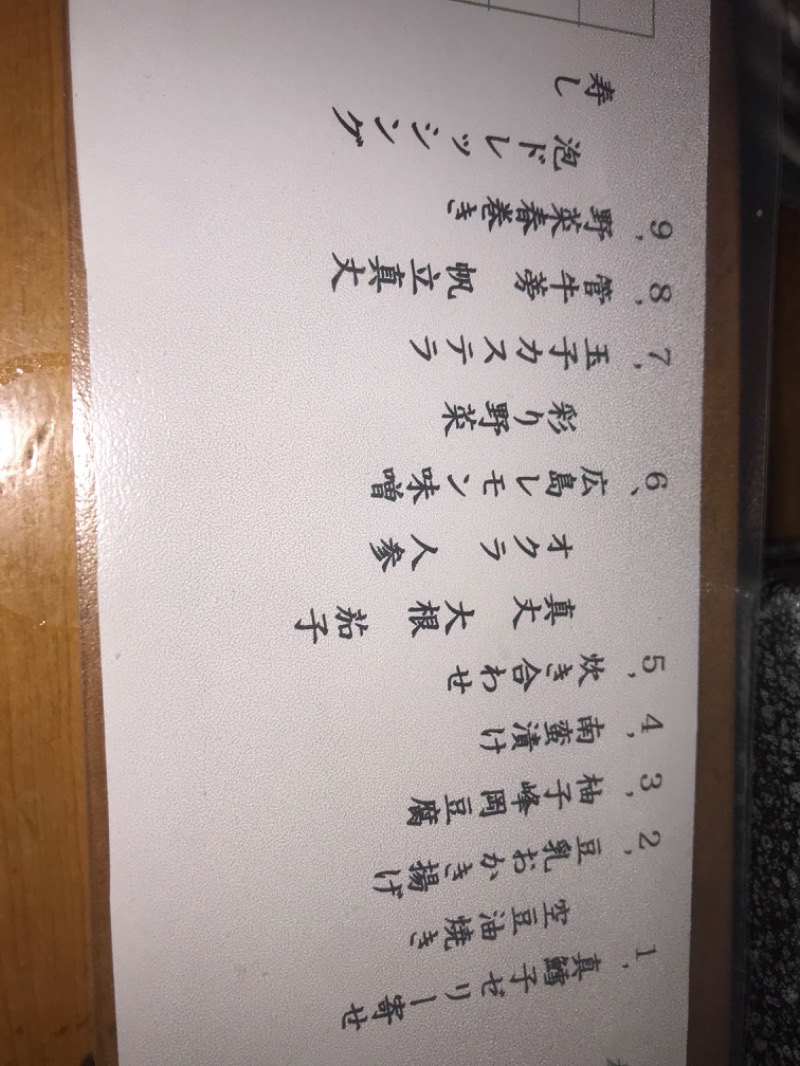 1, 真鱈子ゼリー寄せ
空豆油焼き
2, 豆乳おかき揚げ
3, 柚子峰岡豆腐
4, 南蛮漬け
5, 炊き合わせ
真丈 大根 茄子
オクラ 人参
6、広島レモン味噌
彩り野菜
7, 玉子カステラ
8, 管牛蒡 帆立真丈
9, 野菜春巻き
泡ドレッシング
寿し